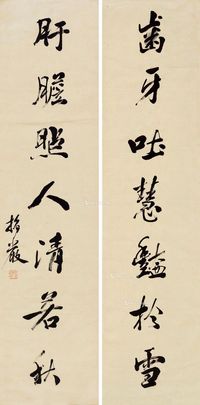 齒牙吐慧艷於雪
肝膽照人清若秋
振嚴